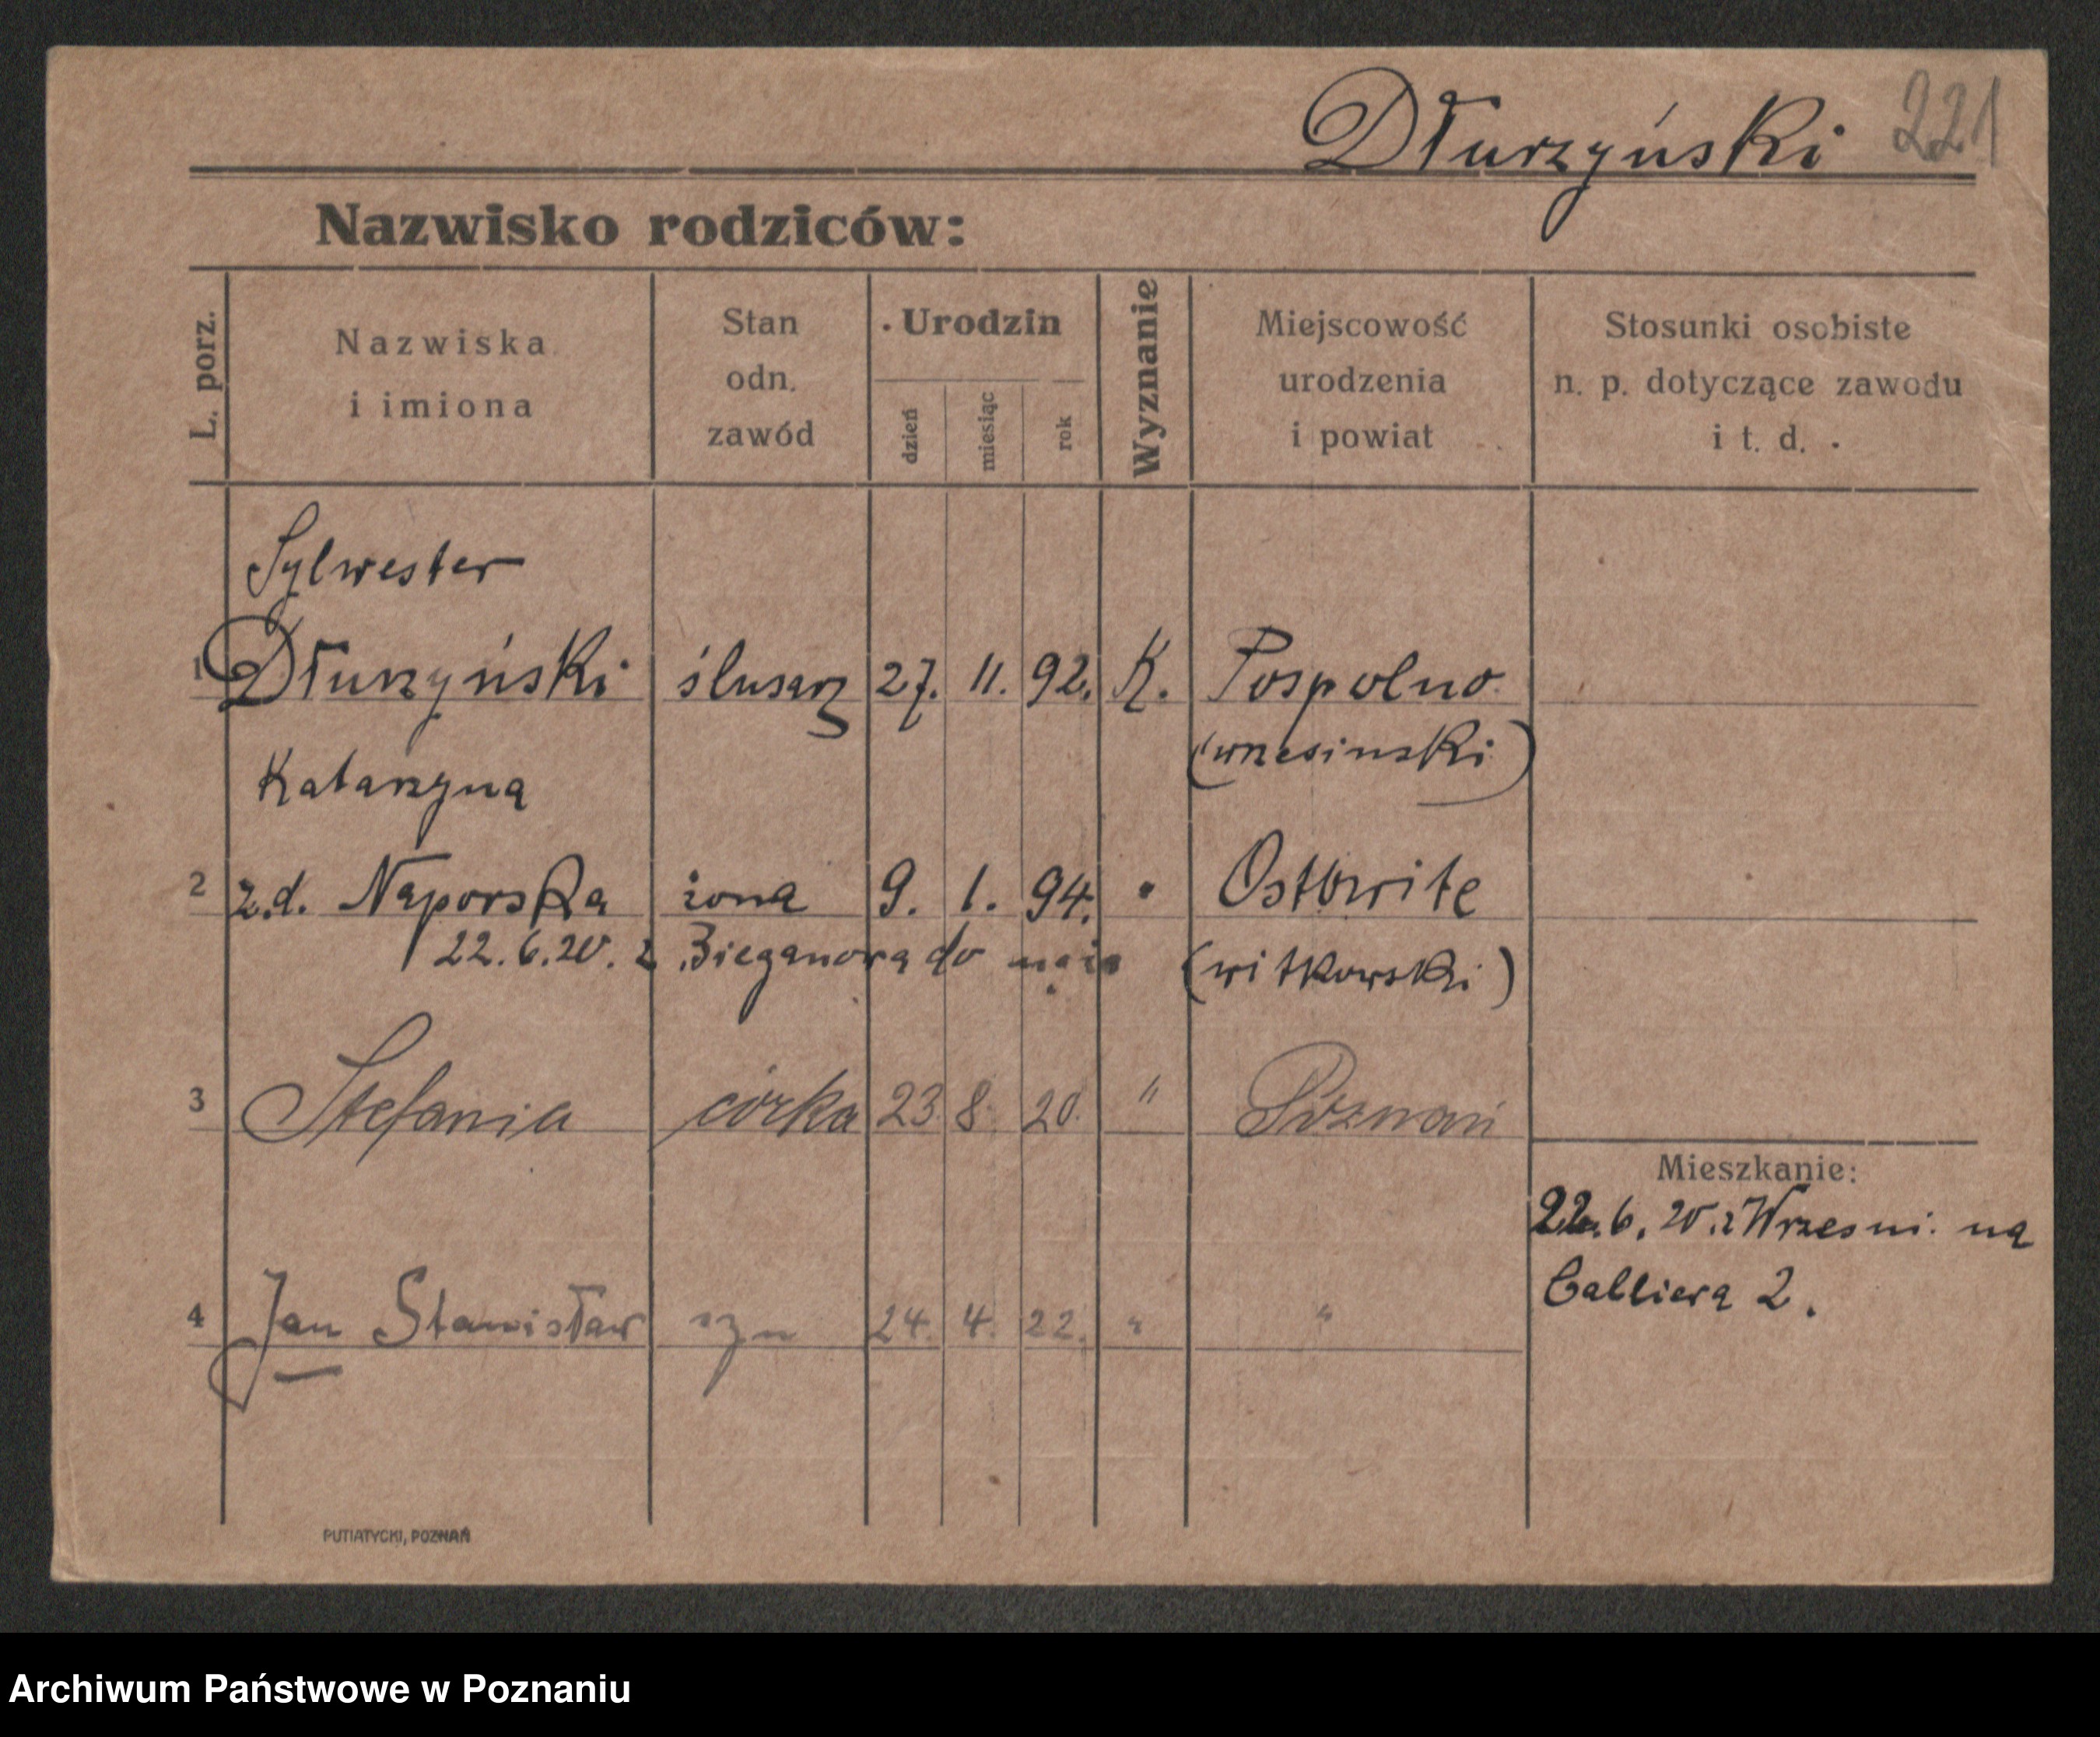 Dłurzyński 221
Nazwisko rodziców:
L. porz.
Nazwiska
i imiona
Stan
odn.
zawód
Urodzin
dzień
miesiąc
rok
Wyznanie
Miejscowość
urodzenia
i powiat
Stosunki osobiste
n. p. dotyczące zawodu
i t. d.
Sylwester
1 Dłurzyński ślusarz 27. 11. 92. K. Pospolno
(wrzesinski)
Katarzyna
2 z.d. Naporska żona 9. 1. 94. " Ostowite
22.6.20. z Bieganowa do męża (witkowski)
3 Stefania córka 23. 8. 20. " Poznań
Mieszkanie:
22.6.20. z Wrzesni. na
Calliera 2.
4 Jan Stanisław syn 24. 4. 22. " "
PUTIATYCKI, POZNAŃ
Archiwum Państwowe w Poznaniu